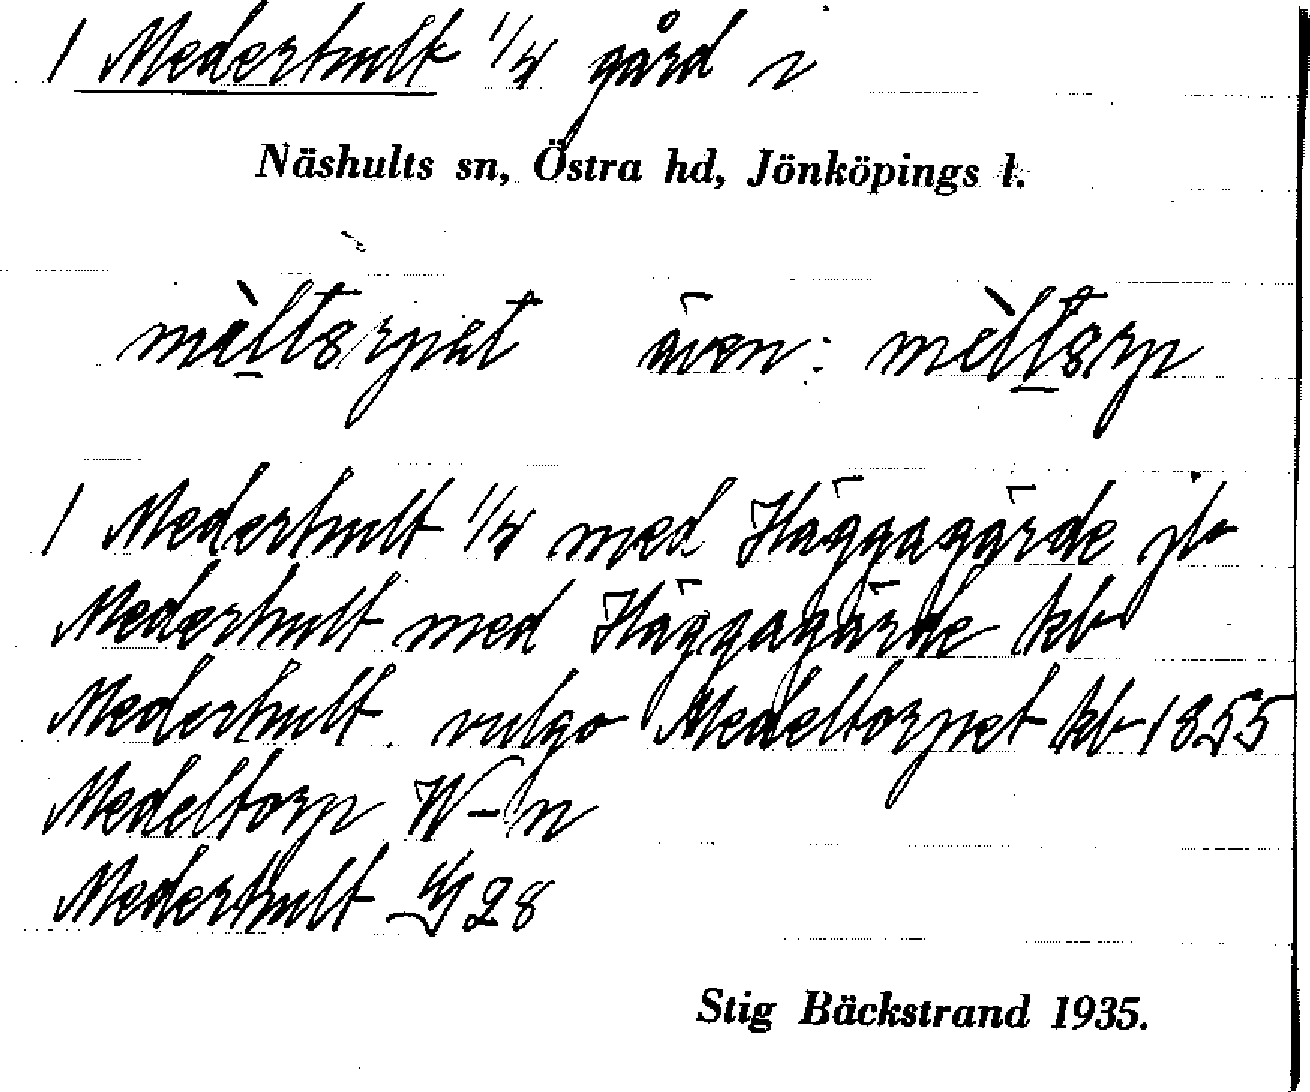 1 Mederhult 1/4 gård i
Näshults sn, Östra hd, Jönköpings l.
mèltsrpet även: mèltsrp
1 Mederhult 1/4 med Häggagärde jb
Mederhult med Häggagärde kb
Mederhult vulgo Medeltorpet kb 1855
Medeltorp W-n
Mederhult 28
Stig Bäckstrand 1935.